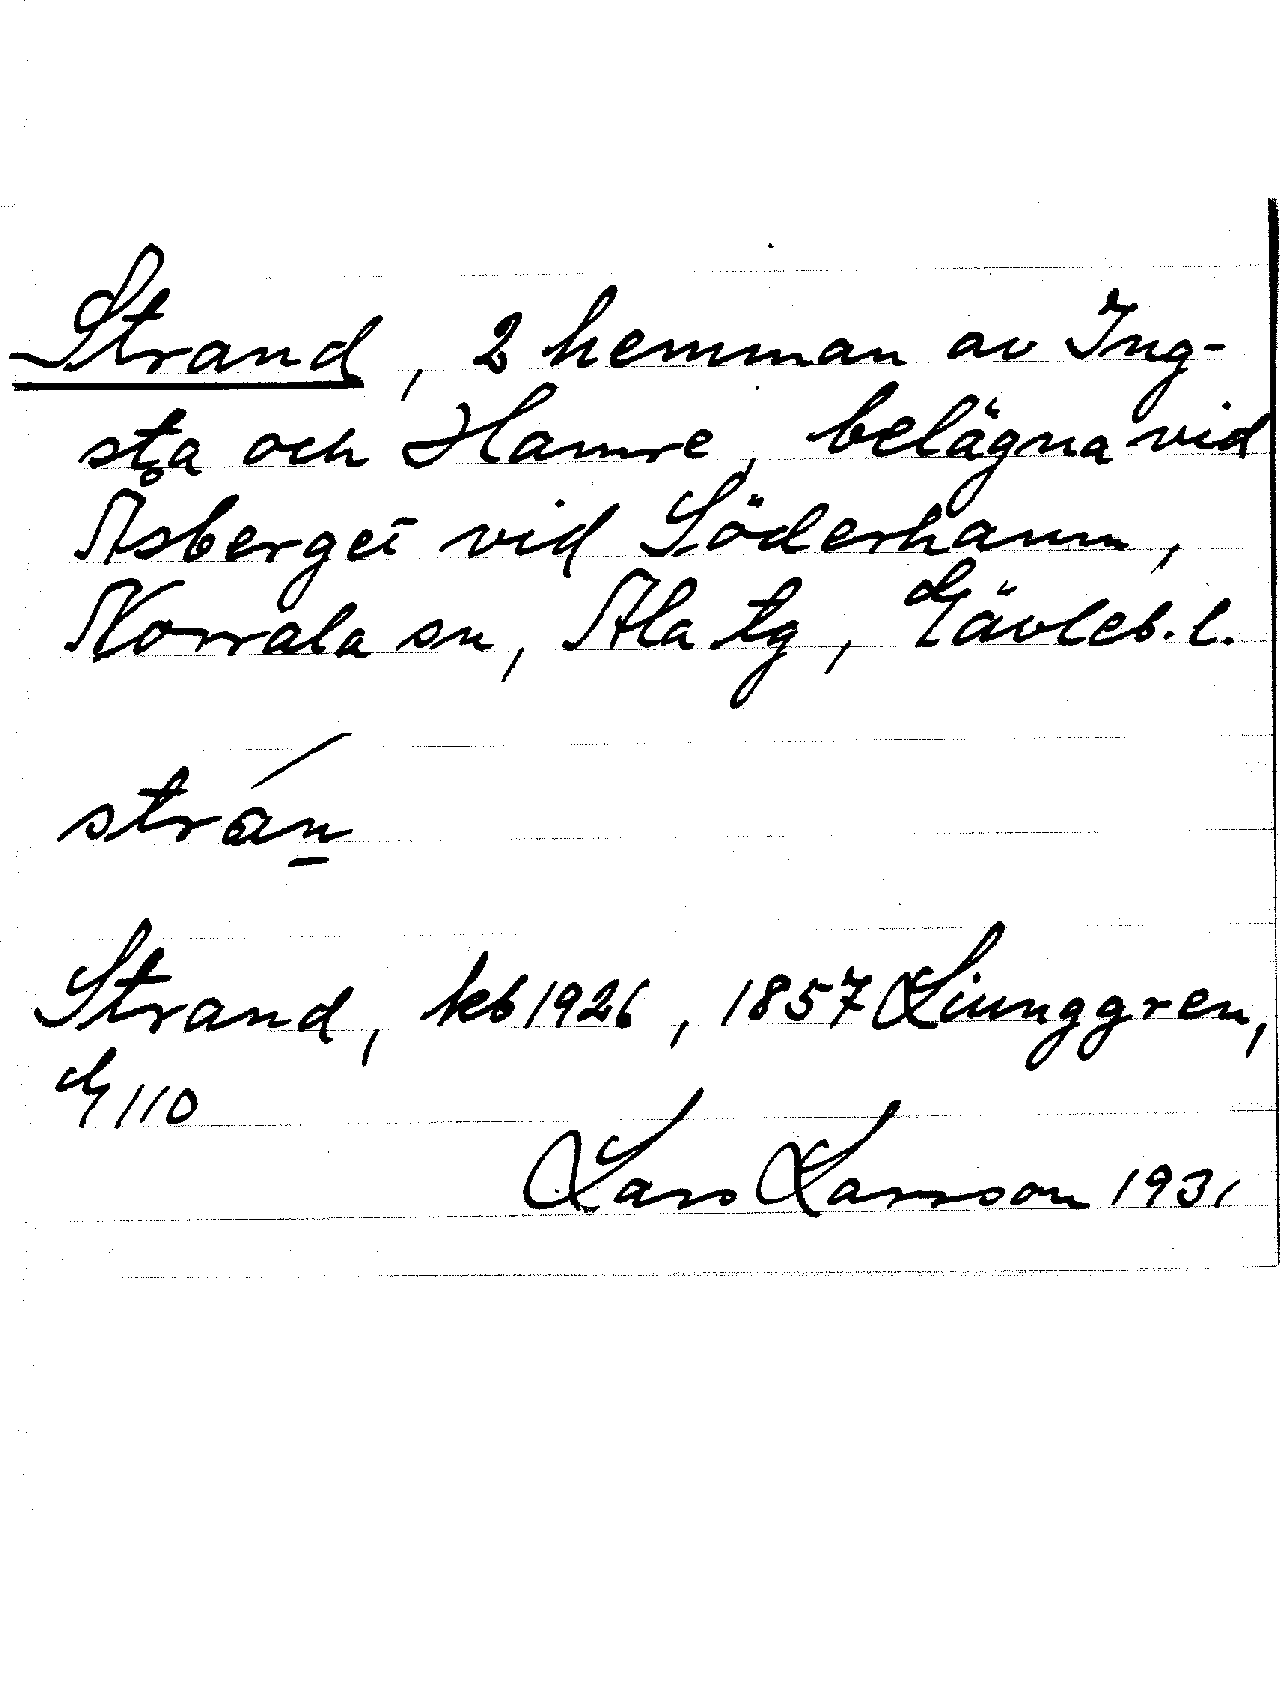 Strand, 2 hemman av Ing-
sta och Hamre, belägna vid
Asberget vid Söderhamn,
Norrala sn, Ala tg, Gävleb. l.
strán
Strand, kb 1926, 1857 Ljunggren,
G 110
Lars Larsson 1931